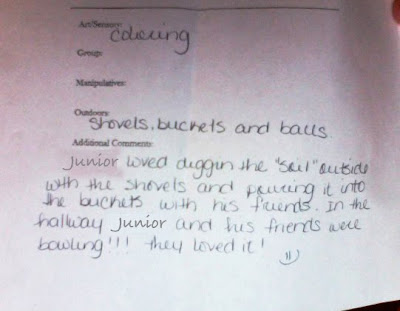 Art/Sensory:
colouring
Group:
Manipulatives:
Outdoors:
shovels, buckets and balls.
Additional Comments:
Junior loved diggin the "soil" outside
with the shovels and pouring it into
the buckets with his friends. In the
hallway Junior and his friends were
bowling!!! they loved it!